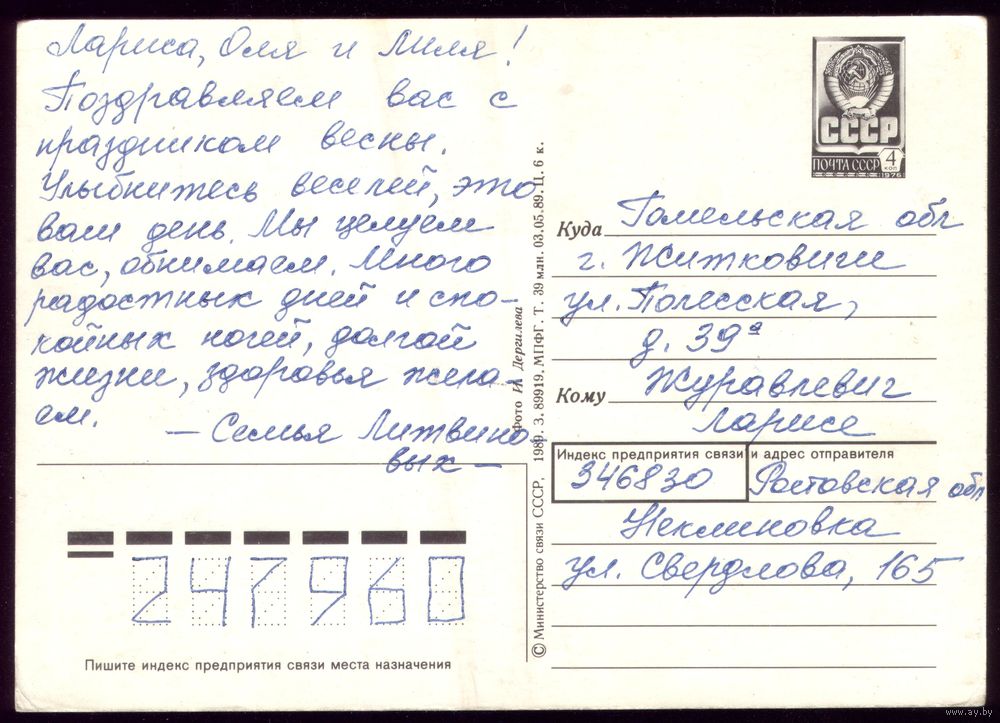 Лариса, Оля и Лиля!
Поздравляем вас с
праздником весны.
Улыбнитесь веселей, это
ваш день. Мы целуем
вас, обнимаем. Много
радостных дней и спо-
койных ночей, долгой
жизни, здоровья жела-
ем.
— Семья Литвино
вых —
Пишите индекс предприятия связи места назначения
247960
© Министерство связи СССР. 1989. З. 89919. МПФГ. Т. 39 млн. 03.05.89. Ц. 6 к.
Фото И. Дергилева
СССР
ПОЧТА СССР
4
КОП
1976
Куда Гомельская обл
г. Житковичи
ул. Полесская,
д. 39а
Кому Журавлевич
Ларисе
Индекс предприятия связи и адрес отправителя
346830 Ростовская обл
Неклиновка
ул. Свердлова, 165
www.ay.by